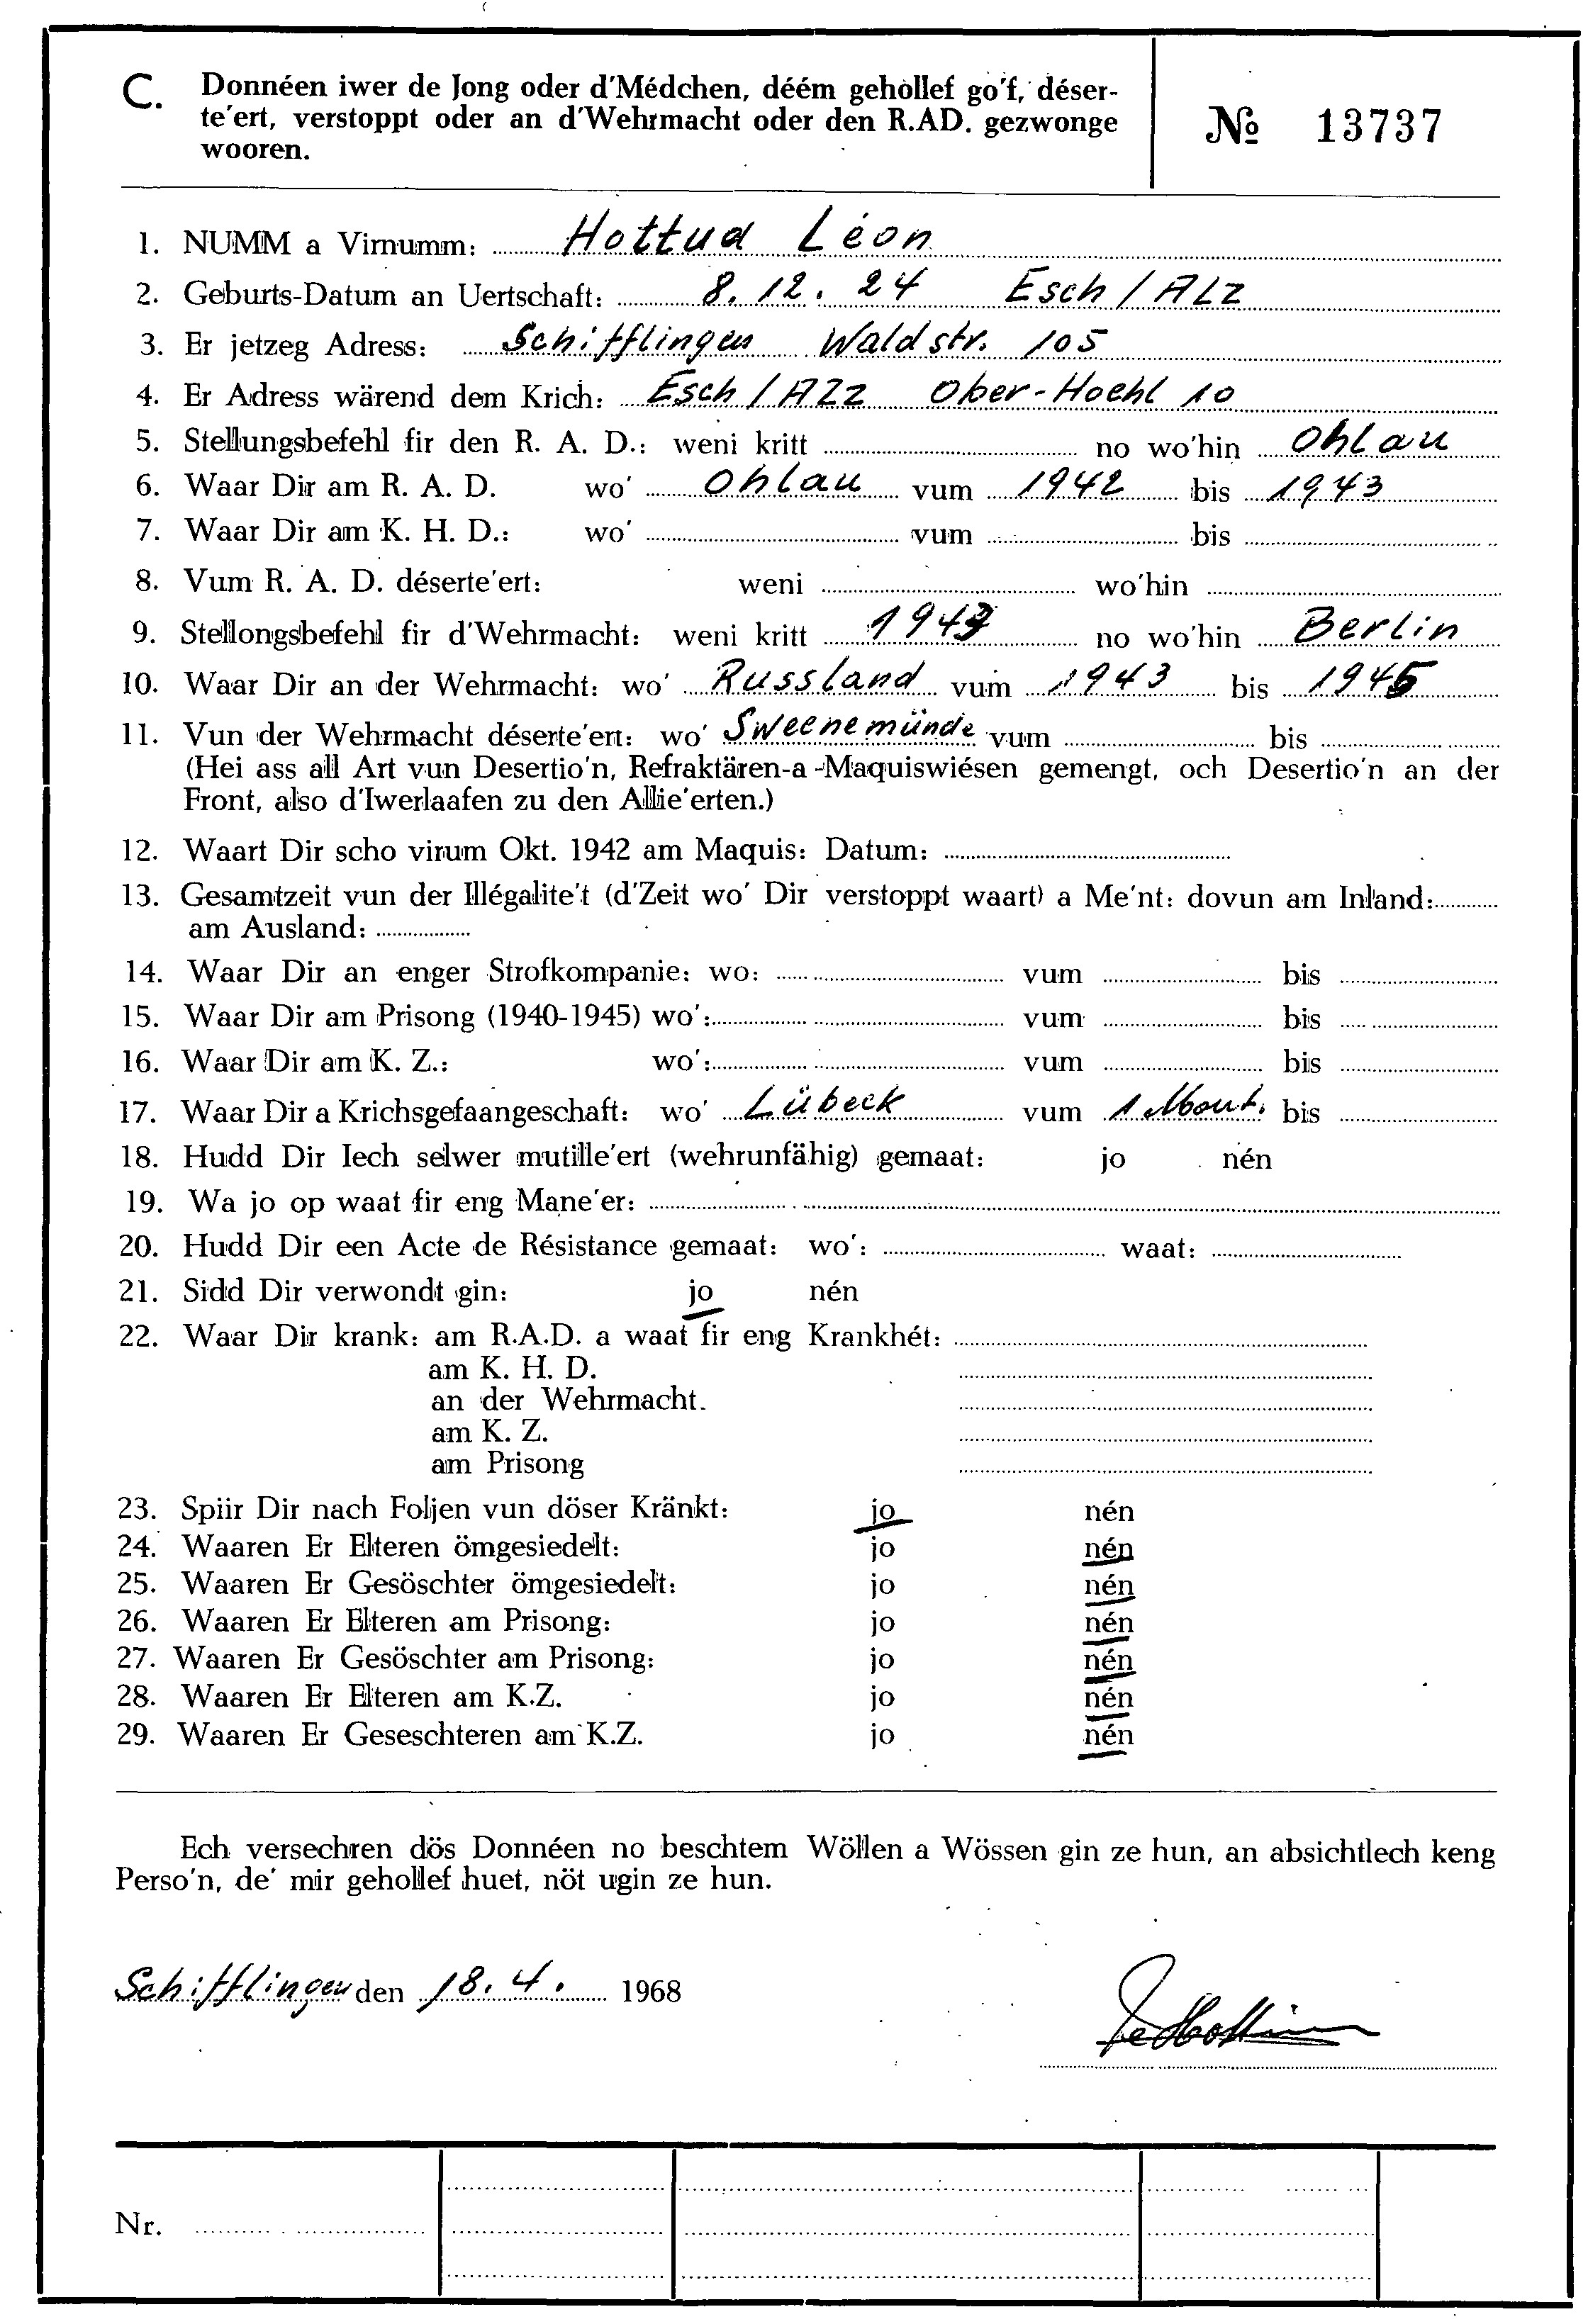 C. Donnéen iwer de Jong oder d'Médchen, déém gehòllef go'f, déser-
te'ert, verstoppt oder an d'Wehrmacht oder den R.AD. gezwonge
wooren.
№ 13737
1. NUMM a Virnumm: Hottua Léon
2. Geburts-Datum an Uertschaft: 8. 12. 24 Esch / Alz
3. Er jetzeg Adress: Schifflingen Waldstr. 105
4. Er Adress wärend dem Krich: Esch / Alz Ober-Hoehl 10
5. Stellungsbefehl fir den R. A. D.: weni kritt no wo'hin Ohlau
6. Waar Dir am R. A. D. wo' Ohlau vum 1942 bis 1943
7. Waar Dir am K. H. D.: wo' vum bis
8. Vum R. A. D. déserte'ert: weni wo'hin
9. Stellongsbefehl fir d'Wehrmacht: weni kritt 1943 no wo'hin Berlin
10. Waar Dir an der Wehrmacht: wo' Russland vum 1943 bis 1945
11. Vun der Wehrmacht déserte'ert: wo' Sweenemünde vum bis
(Hei ass all Art vun Desertio'n, Refraktären-a-Maquiswiésen gemengt, och Desertio'n an der
Front, also d'Iwerlaafen zu den Allie'erten.)
12. Waart Dir scho virum Okt. 1942 am Maquis: Datum:
13. Gesamtzeit vun der Illégalite't (d'Zeit wo' Dir verstoppt waart) a Me'nt: dovun am Inland:
am Ausland:
14. Waar Dir an enger Strofkompanie: wo: vum bis
15. Waar Dir am Prisong (1940-1945) wo': vum bis
16. Waar Dir am K. Z.: wo': vum bis
17. Waar Dir a Krichsgefaangeschaft: wo' Lübeck vum 1 Mont. bis
18. Hudd Dir Iech selwer mutille'ert (wehrunfähig) gemaat: jo nén
19. Wa jo op waat fir eng Mane'er:
20. Hudd Dir een Acte de Résistance gemaat: wo': waat:
21. Sidd Dir verwondt gin: jo nén
22. Waar Dir krank: am R.A.D. a waat fir eng Krankhét:
am K. H. D.
an der Wehrmacht.
am K. Z.
am Prisong
23. Spiir Dir nach Foljen vun döser Kränkt: jo nén
24. Waaren Er Elteren ömgesiedelt: jo nén
25. Waaren Er Gesöschter ömgesiedelt: jo nén
26. Waaren Er Elteren am Prisong: jo nén
27. Waaren Er Gesöschter am Prisong: jo nén
28. Waaren Er Elteren am K.Z. jo nén
29. Waaren Er Geseschteren am K.Z. jo nén
Ech versechren dös Donnéen no beschtem Wöllen a Wössen gin ze hun, an absichtlech keng
Perso'n, de' mir gehollef huet, nöt ugin ze hun.
Schifflingen den 18. 4. 1968
Nr.